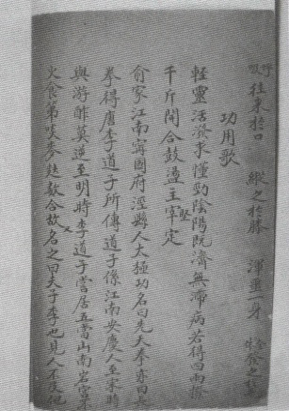 呼吸往來於口　縱之於膝　渾噩一身　全體發之於毛
功用歌
輕靈活潑求懂勁陰陽既濟無滯病若得四兩撥
千斤開合鼓盪主宰定
俞家江南寧國府涇縣人太極功名曰先天拳亦曰長
拳得唐李道子所傳道子係江南安慶人至宋時
與游酢莫逆至明時李道子嘗居武當山南岩宮不
火食第啖麥麩數合故又名之曰夫子李也見人不及他